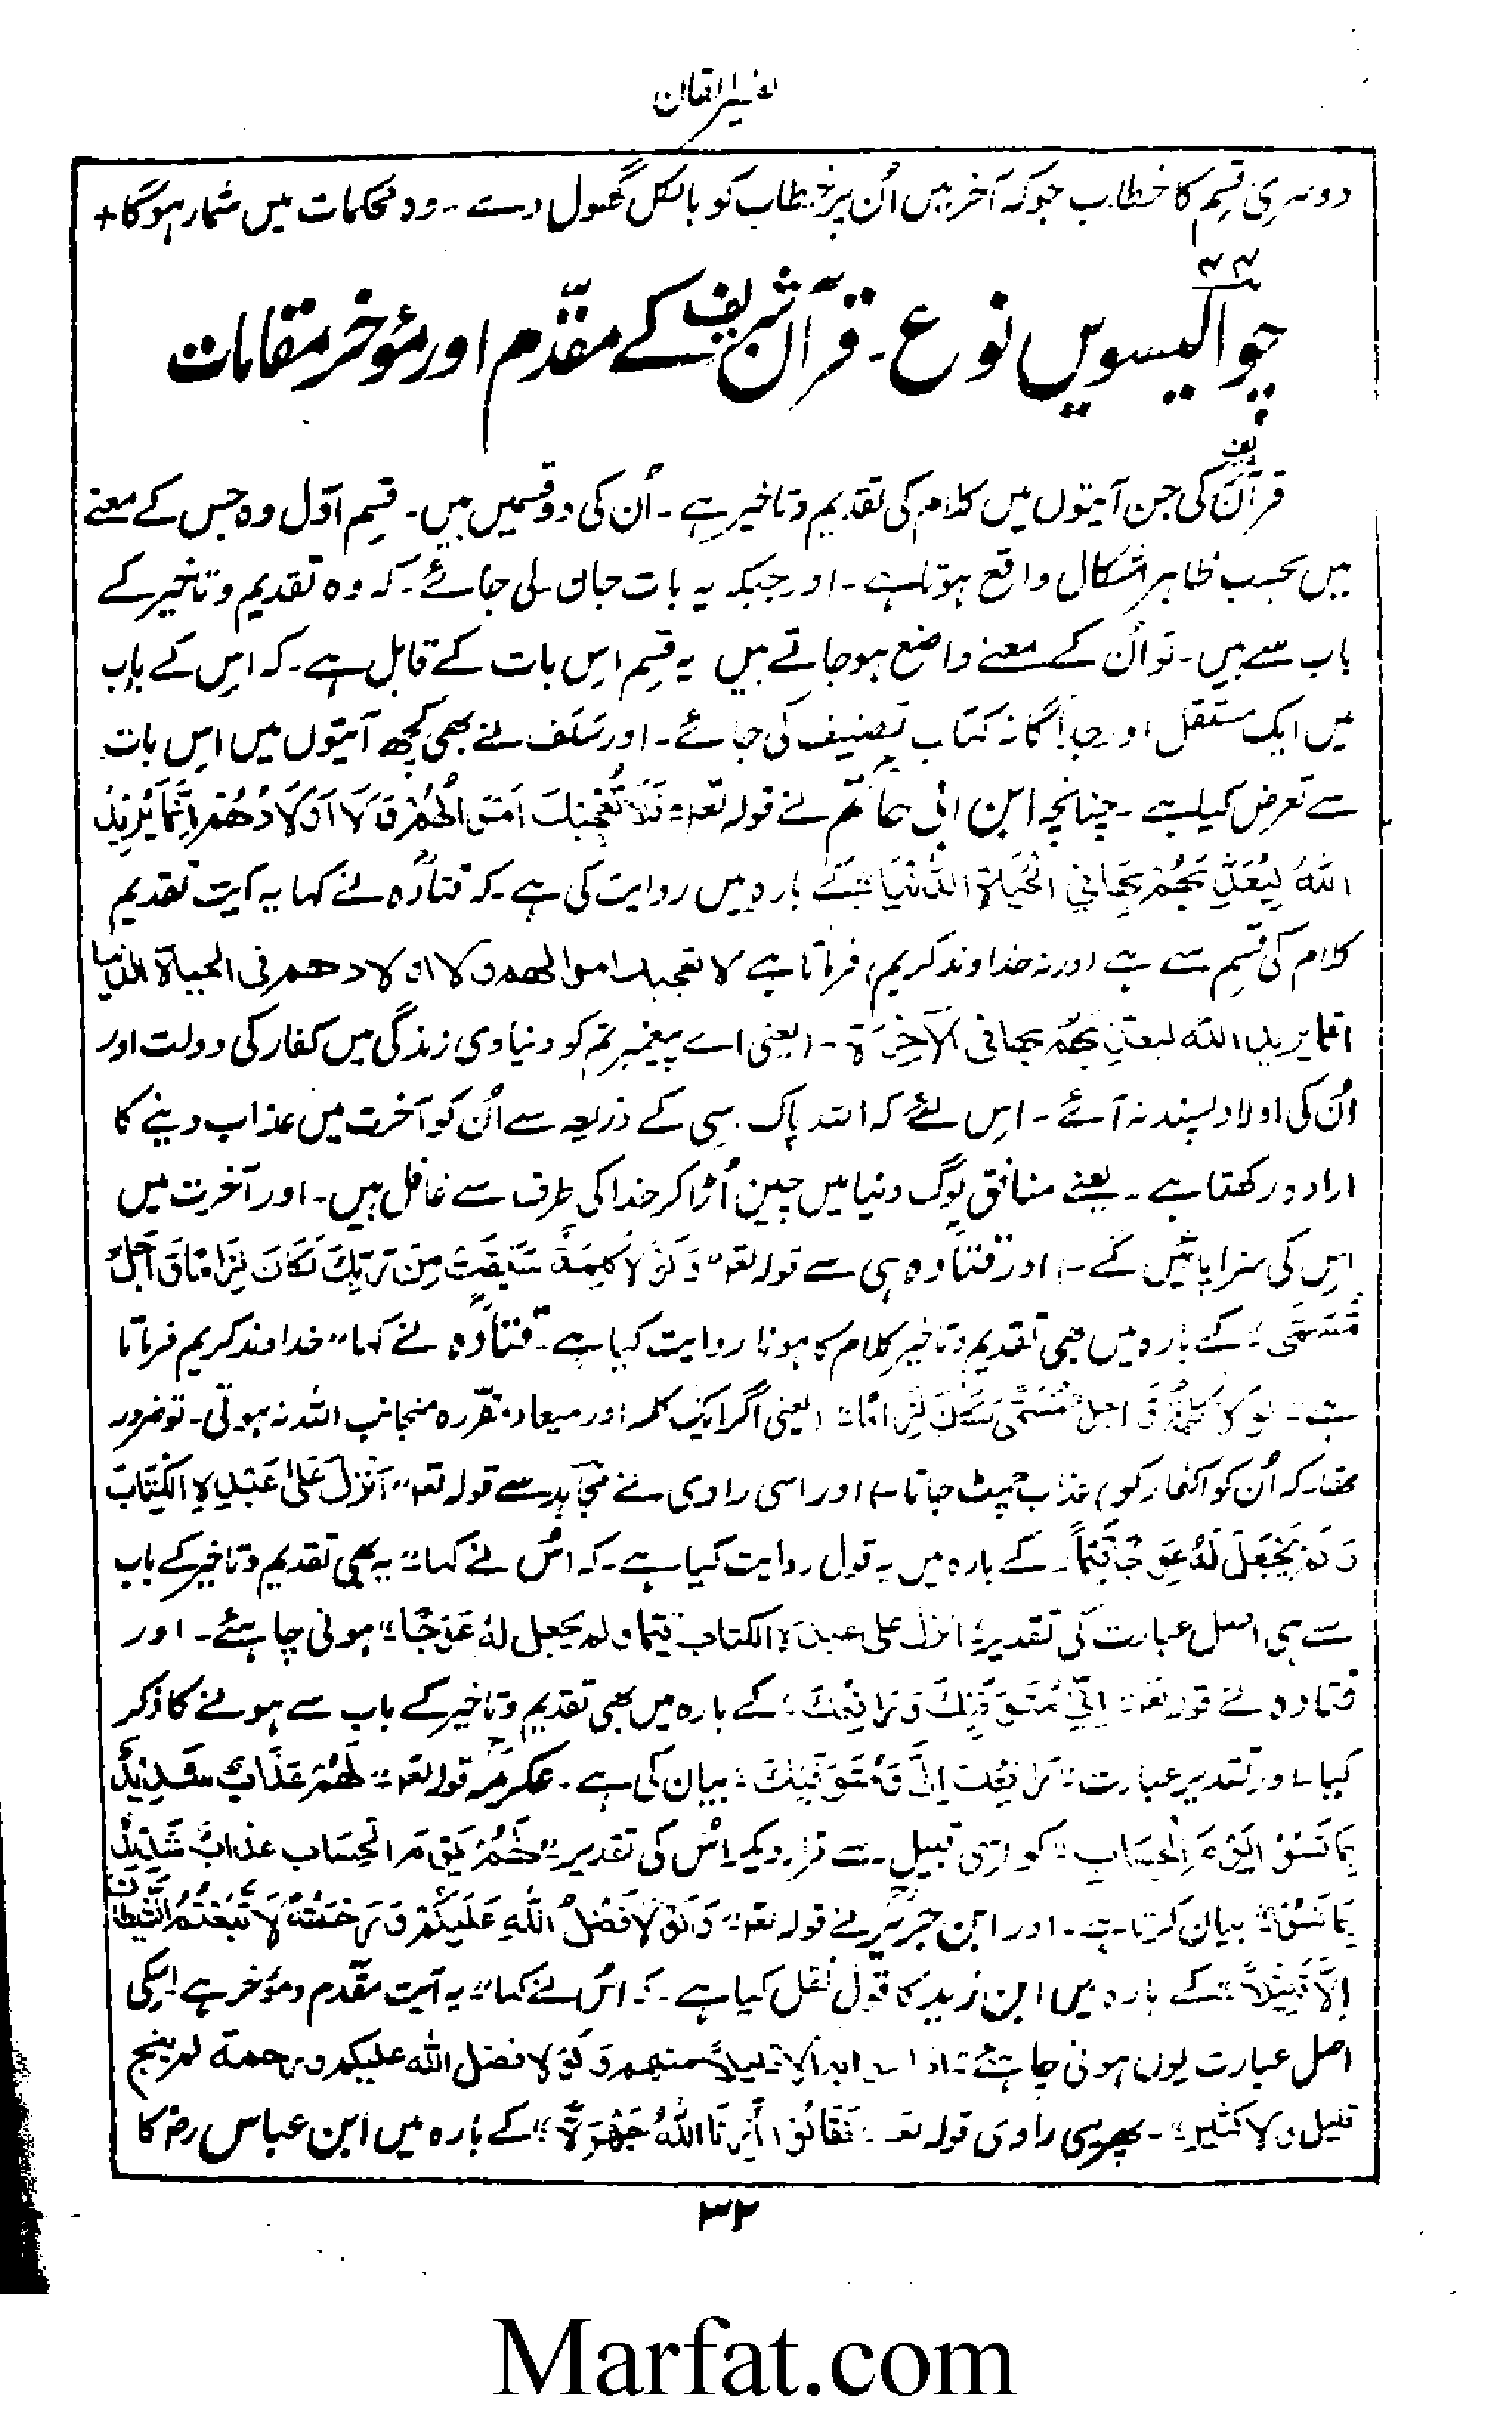 تفسیر اتقان
دوسری قسم کا خطاب جوکہ آخر میں اُن پر خطاب کو بالکل کھول دے۔ وہ محکمات میں شمار ہوگا +
۴۴
چوالیسویں نوع۔ قرآن شریف کے مقدّم اور مؤخر مقامات
قرآن کی جن آیتوں میں کلام کی تقدیم و تاخیر ہے۔ اُن کی دو قسمیں ہیں۔ قسم اوّل وہ جس کے معنے
میں بحسب ظاہر اشکال واقع ہوتا ہے۔ اور جبکہ یہ بات جان لی جائے۔ کہ وہ تقدیم و تاخیر کے
باب سے ہیں۔ تو اُن کے معنے واضح ہوجاتے ہیں یہ قسم اِس بات کے قابل ہے۔ کہ اِس کے باب
میں ایک مستقل اور جداگانہ کتاب تصنیف کی جائے۔ اور سَلَف نے بھی کچھ آیتوں میں اِس بات
سے تعرض کیا ہے۔ چنانچہ ابن ابی حاتم نے قولہ تعہ " فَلَا تُعْجِبْكَ اَمْوَالُهُمْ وَلَا اَوْلَادُهُمْ اِنَّمَا يُرِيْدُ
اللّٰهُ لِيُعَذِّبَهُمْ بِهَا فِي الْحَيَاةِ الدُّنْيَا " کے بارہ میں روایت کی ہے۔ کہ قتادہ نے کہا یہ آیت تقدیم
کلام کی قسم سے ہے اور نہ خداوند کریم فرماتا ہے لا تعجبك اموالهم ولا اولادهم فی الحیاة الدنیا
انما یرید اللّٰہ لیعذبهم بها فی الآخِرَة۔ (یعنی اے پیغمبر تم کو دنیاوی زندگی میں کفار کی دولت اور
اُن کی اولاد پسند نہ آئے۔ اِس لئے کہ اللہ پاک اسی کے ذریعہ سے اُن کو آخرت میں عذاب دینے کا
ارادہ رکھتا ہے۔ یعنے منافق لوگ دنیا میں چین اُڑا کر خدا کی طرف سے غافل ہیں۔ اور آخرت میں
اِس کی سزا پائیں گے۔) اور قتادہ ہی سے قولہ تعہ " وَلَوْلَا كَلِمَةٌ سَبَقَتْ مِنْ رَبِّكَ لَكَانَ لِزَامًا وَاَجَلٌ
مُسَمًّى " کے بارہ میں بھی تقدیم و تاخیر کلام کا ہونا روایت کیا ہے۔ قتادہ نے کہا " خداوند کریم فرماتا
ہے۔ لو لا كلمة و اجل مُسَمًّى لَكَانَ لِزَامًا " (یعنی اگر ایک کلمہ اور میعاد مقررہ منجانب اللہ نہ ہوتی۔ تو ضرور
تھا۔ کہ اُن کو (کفار کو) عذاب چمٹ جاتا) اور اسی راوی نے مجاہد سے قولہ تعہ " اَنْزَلَ عَلٰى عَبْدِهِ الْكِتَابَ
وَلَمْ يَجْعَلْ لَهٗ عِوَجًا قَيِّمًا " کے بارہ میں یہ قول روایت کیا ہے۔ کہ اُس نے کہا " یہ بھی تقدیم و تاخیر کے باب
سے ہی اصل عبارت کی تقدیر " انزل علی عبده الكتاب قیما ولم یجعل لهٗ عِوَجًا " ہونی چاہئے۔ اور
قتادہ نے قولہ تعہ " اِنِّيْ مُتَوَفِّيْكَ وَرَافِعُكَ " کے بارہ میں بھی تقدیم و تاخیر کے باب سے ہونے کا ذکر
کیا۔ اور تقدیر عبارت " رَافِعُكَ اِلَيَّ وَمُتَوَفِّيْكَ " بیان کی ہے۔ عکرمہ قولہ تعہ " لَهُمْ عَذَابٌ شَدِيْدٌ
بِمَا نَسُوْا يَوْمَ الْحِسَابِ " کو اسی قبیل سے قرار دیکر اِس کی تقدیر " لَهُمْ يَوْمَ الْحِسَابِ عَذَابٌ شَدِيْدٌ
بِمَا نَسُوْا " بیان کرتا ہے۔ اور ابن جریر نے قولہ تعہ " وَلَوْلَا فَضْلُ اللّٰهِ عَلَيْكُمْ وَرَحْمَتُهٗ لَاتَّبَعْتُمُ الشَّيْطَانَ
اِلَّا قَلِيْلًا " کے بارہ میں ابن زید کا قول نقل کیا ہے۔ کہ اُس نے کہا " یہ آیت مقدّم و مؤخر ہے اسکی
اصل عبارت یوں ہونی چاہئے " الا قلیلاً منهم وَلَوْ لا فضل اللّٰه علیکم ورحمته لم ینج
قلیل ولا کثیر "۔ پھر یہی راوی قولہ تعہ " فَقَالُوْا اَرِنَا اللّٰهَ جَهْرَةً " کے بارہ میں ابن عباس رضہ کا
۳۲
Marfat.com